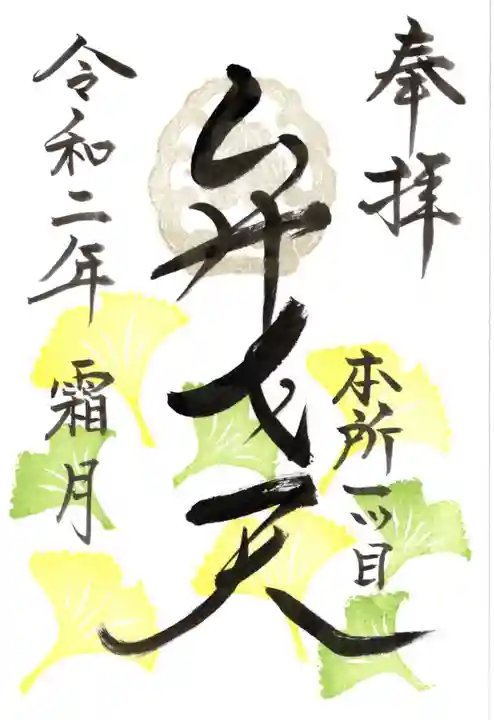 奉拝
本所一ッ目
弁才天
令和二年 霜月